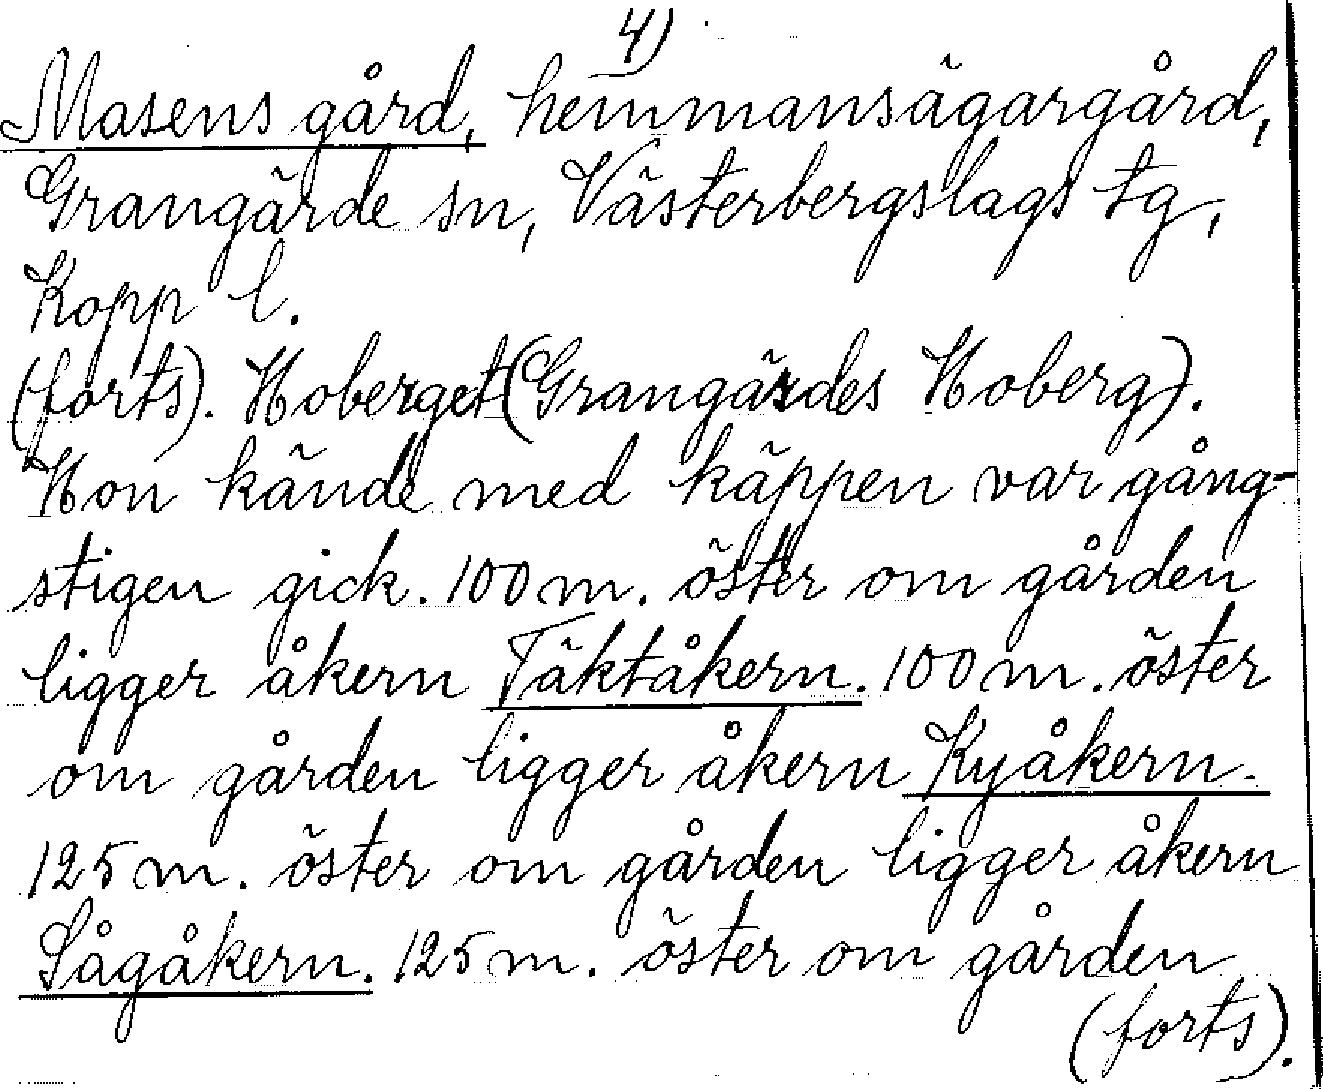 4)
Masens gård, hemmansägargård,
Grangärde sn, Västerbergslags tg,
Kopp l.
(forts). Hoberget (Grangärdes Hoberg).
Hon kände med käppen var gång-
stigen gick. 100 m. öster om gården
ligger åkern Täktåkern. 100 m. öster
om gården ligger åkern Kyåkern.
125 m. öster om gården ligger åkern
Sågåkern. 125 m. öster om gården
(forts).